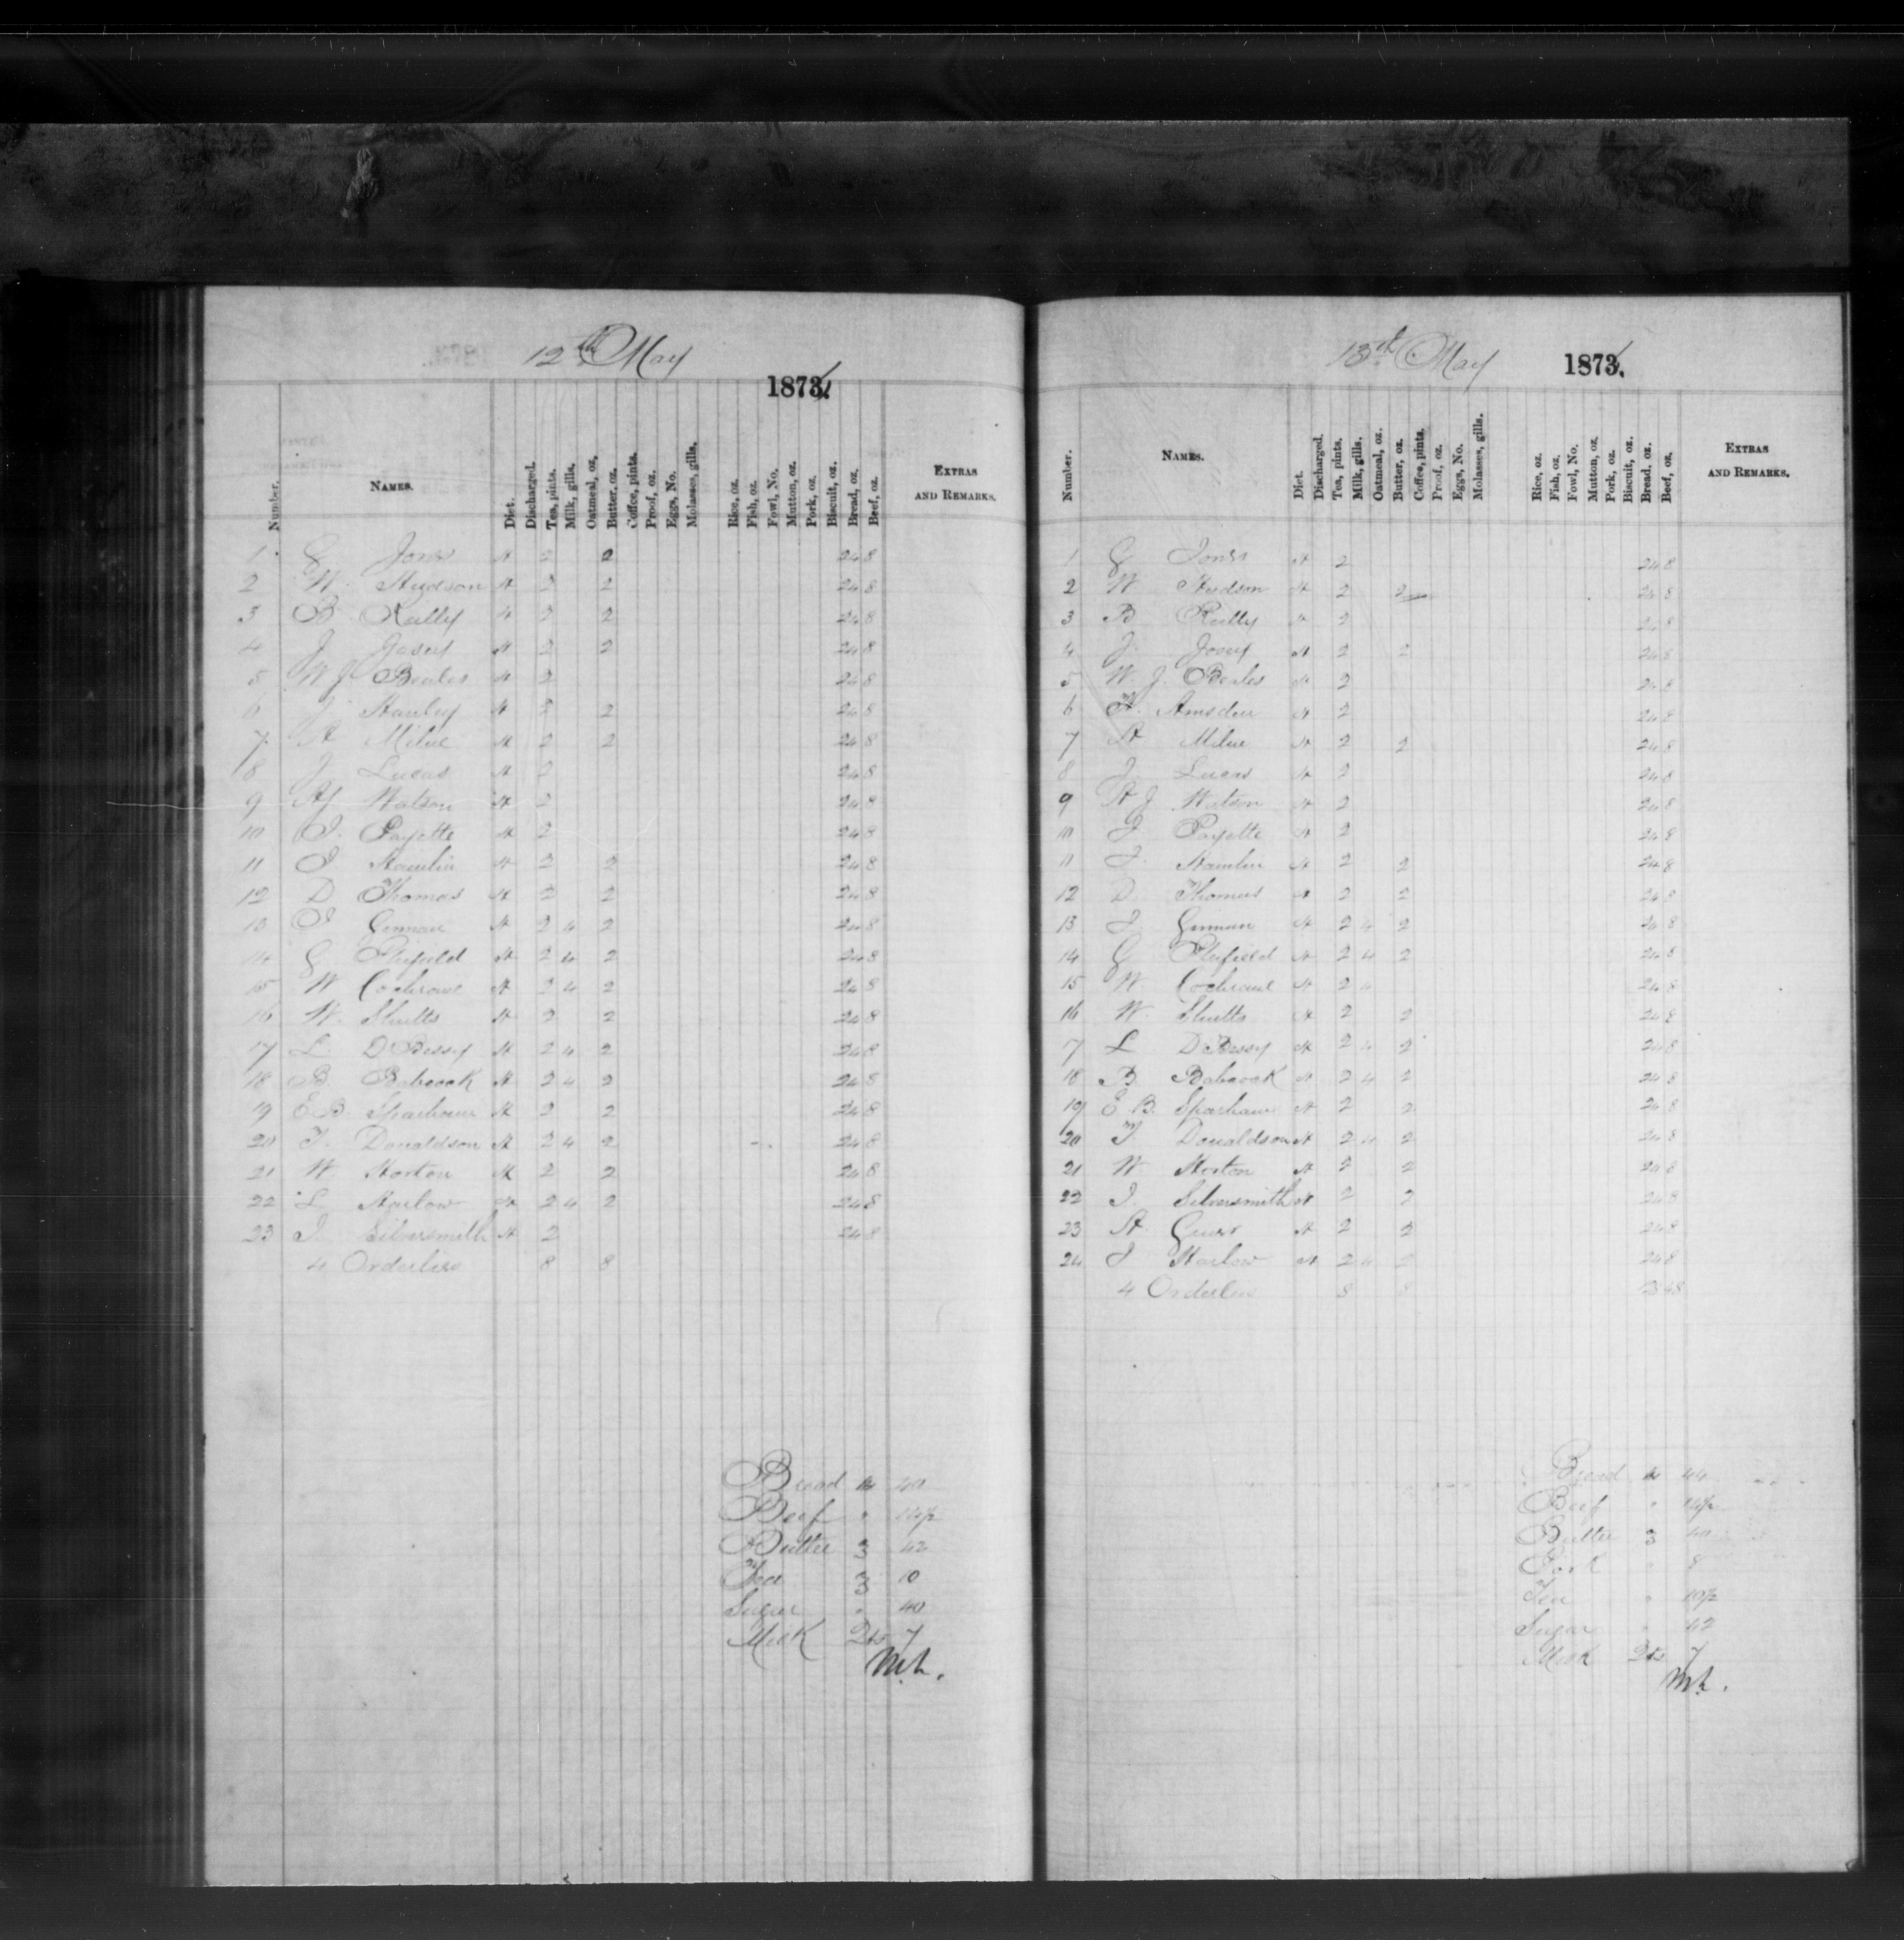 12th May
1873.
Number. NAMES. Diet. Discharged. Tea, pints. Milk, gills. Oatmeal, oz. Butter, oz. Coffee, pints. Proof, oz. Eggs, No. Molasses, gills. Rice, oz. Fish, oz. Fowl, No. Mutton, oz. Pork, oz. Biscuit, oz. Bread, oz. Beef, oz. EXTRAS AND REMARKS.
1 G Jones H 2 2 24 8
2 W. Hudson H 2 2 24 8
3 B. Reilly H 2 2 24 8
4 J H 2 2 24 8
5 W J Beales H 2 24 8
6 J Hanley H 2 2 24 8
7 H Milne H 2 2 24 8
8 J Lucas H 2 24 8
9 HJ Watson H 2 24 8
10 J. Payette H 2 24 8
11 J Hamlin H 2 2 24 8
12 D Thomas H 2 2 24 8
13 J H 2 4 2 24 8
14 G H 2 4 2 24 8
15 W Cochrane H 2 4 2 24 8
16 W. Shutts H 2 2 24 8
17 L. D Bessey H 2 4 2 24 8
18 B. Babcock H 2 4 2 24 8
19 E.B. Sparham H 2 2 24 8
20 T. Donaldson H 2 4 2 24 8
21 W Horton H 2 2 24 8
22 L Harlow H 2 4 2 24 8
23 J Silversmith H 2 24 8
4 Orderlies 8 8
Bread 40
Beef " 14½
Butter 3 42
Tea 3 10
Sugar " 40
Milk Qts 7
13th May 1873.
Number. NAMES. Diet. Discharged. Tea, pints. Milk, gills. Oatmeal, oz. Butter, oz. Coffee, pints. Proof, oz. Eggs, No. Molasses, gills. Rice, oz. Fish, oz. Fowl, No. Mutton, oz. Pork, oz. Biscuit, oz. Bread, oz. Beef, oz. EXTRAS AND REMARKS.
1 G Jones H 2 24 8
2 W Hudson H 2 2 24 8
3 B Reilly H 2 24 8
4 J. H 2 2 24 8
5 W. J. Beales H 2 24 8
6 Amsden H 2 24 8
7 H Milne H 2 2 24 8
8 J. Lucas H 2 24 8
9 H J Watson H 2 24 8
10 J Payette H 2 24 8
11 J. Hamlin H 2 2 24 8
12 D. Thomas H 2 2 24 8
13 J H 2 4 2 24 8
14 G H 2 4 2 24 8
15 W. Cochrane H 2 4 24 8
16 W. Shutts H 2 2 24 8
17 L D Bessey H 2 4 2 24 8
18 B. Babcock H 2 4 2 24 8
19 E B. Sparham H 2 2 24 8
20 T. Donaldson H 2 4 2 24 8
21 W Horton H 2 2 24 8
22 J. Silversmith H 2 2 24 8
23 H H 2 2 24 8
24 J Harlow H 2 4 2 24 8
4 Orderlies 8 8 48
Bread 44
Beef " 14½
Butter 3 40
Pork " 8
Tea " 10½
Sugar " 42
Milk Qts 7